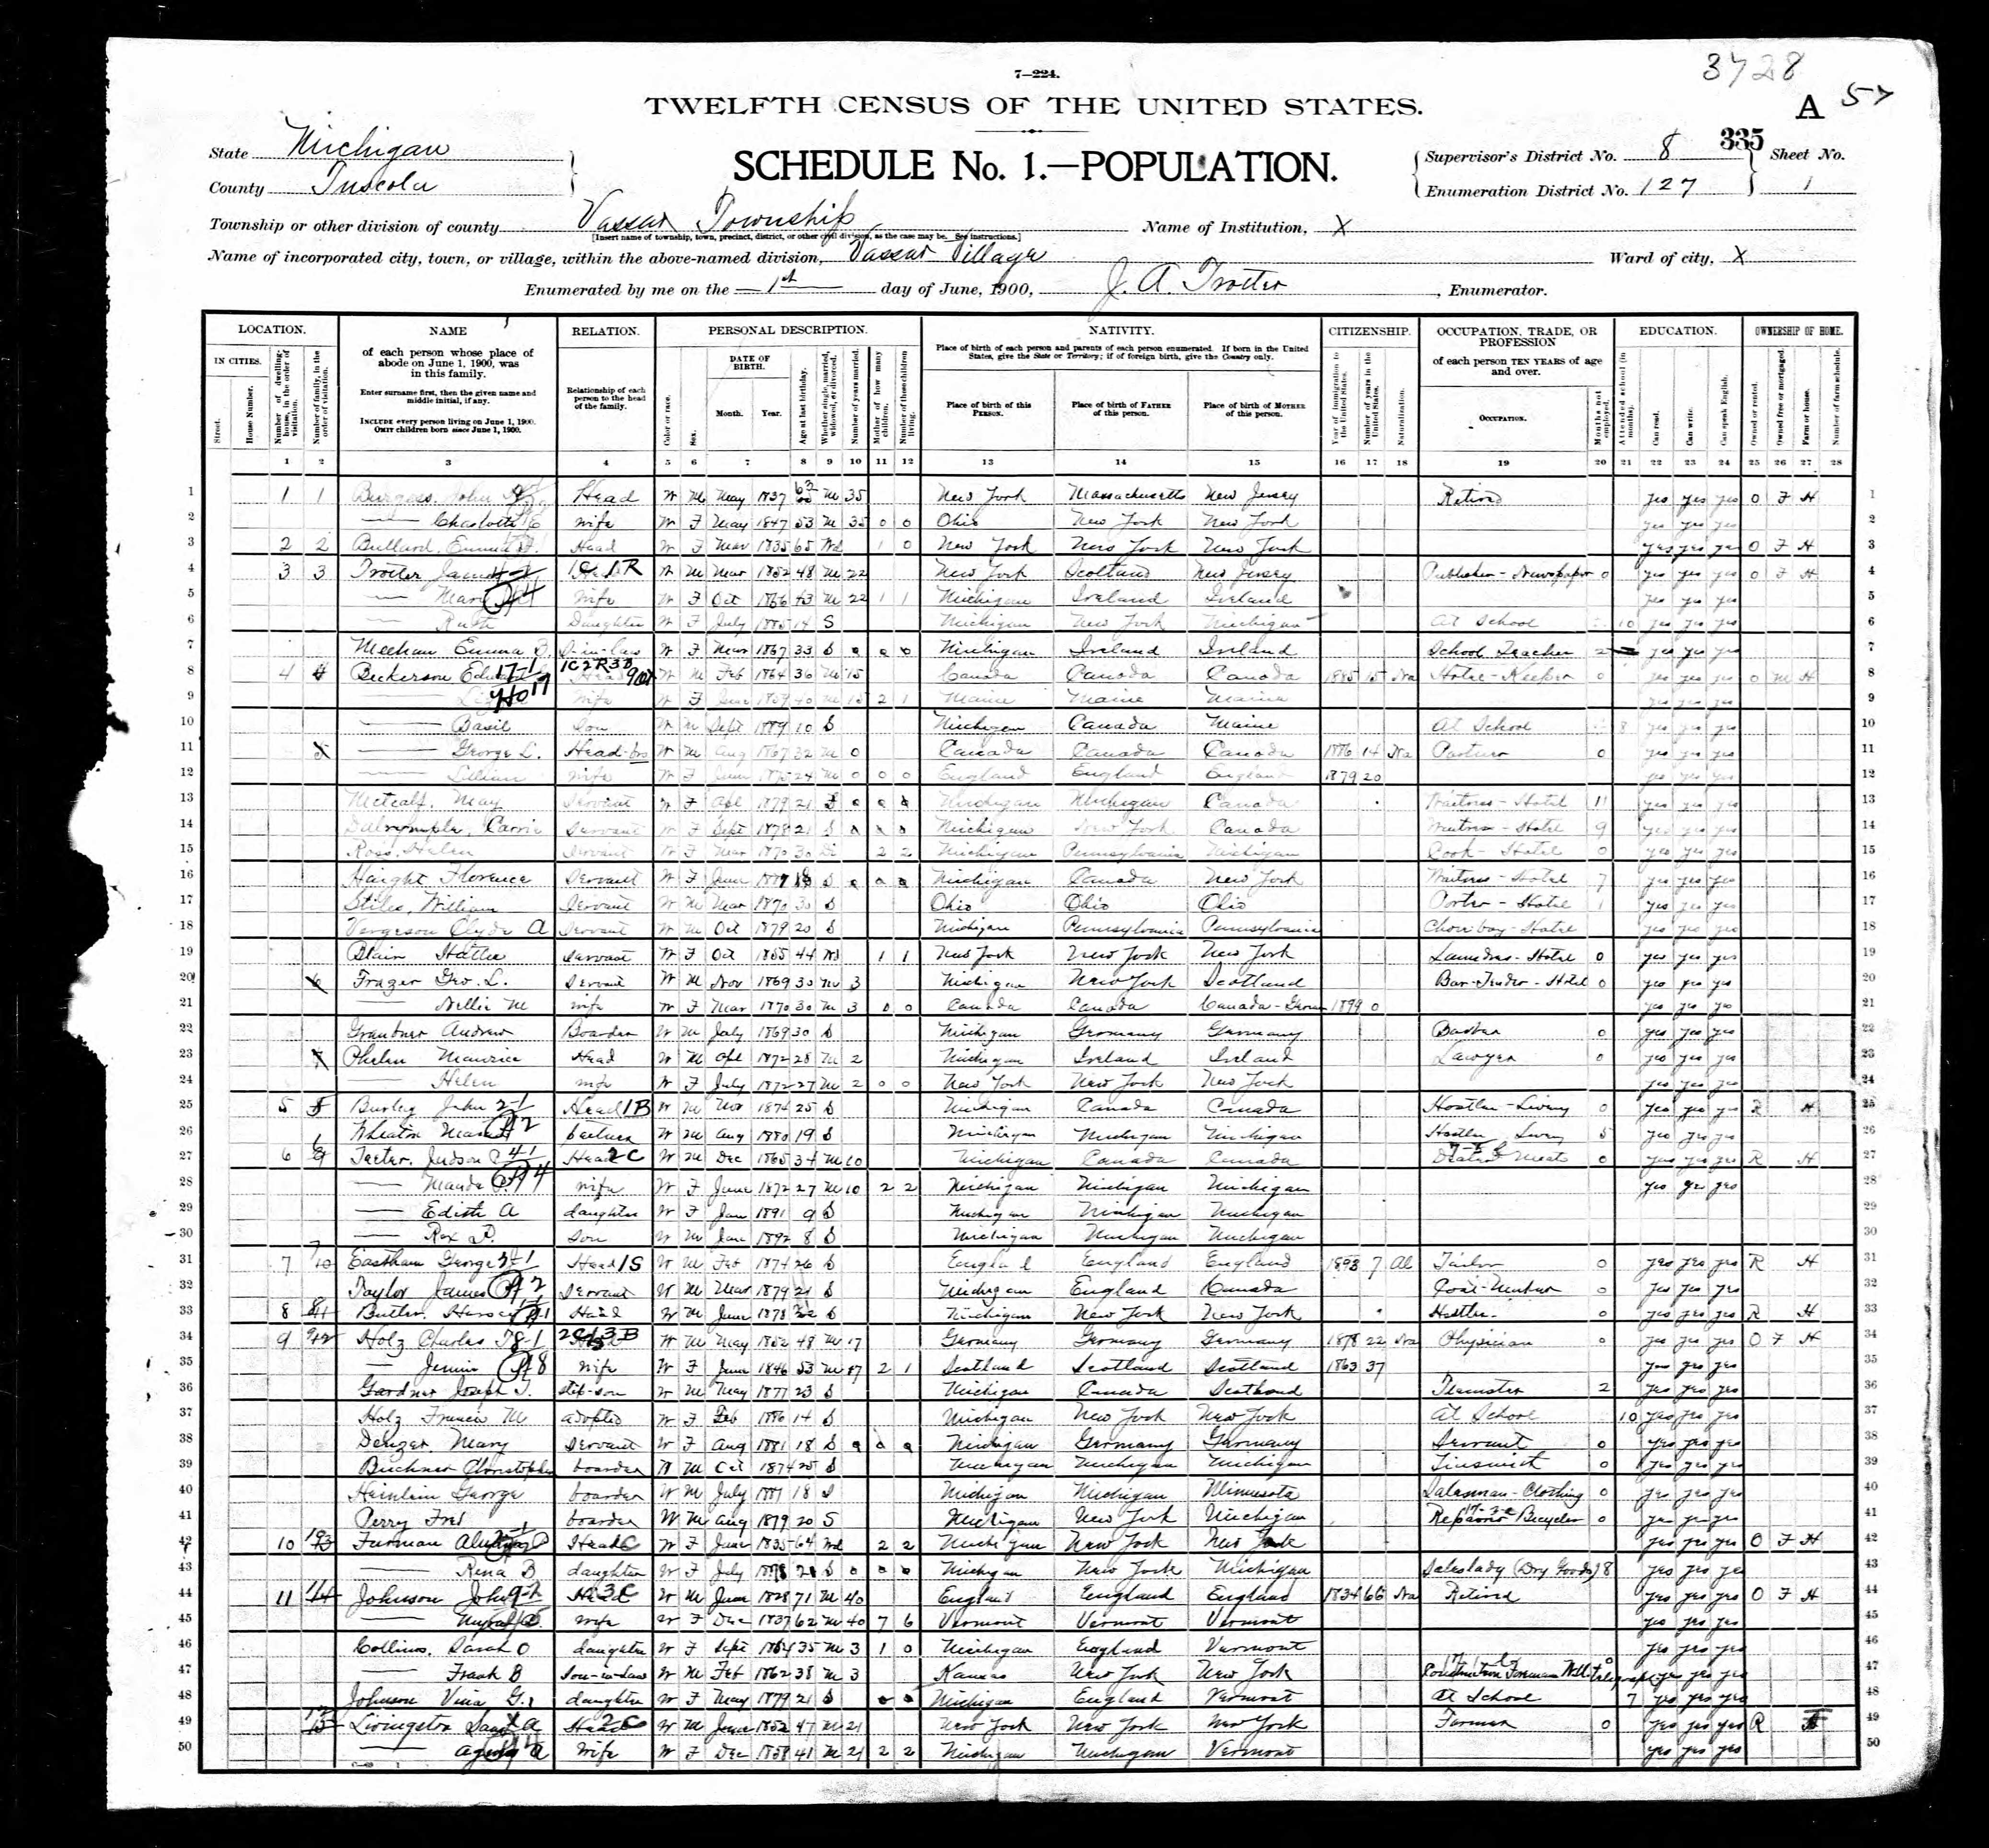 3728
7—224.
TWELFTH CENSUS OF THE UNITED STATES.
A 57
335
State Michigan
County Tuscola
SCHEDULE No. 1.—POPULATION.
Supervisor's District No. 8
Enumeration District No. 127
Sheet No. 1
Township or other division of county Vassar Township
[Insert name of township, town, precinct, district, or other civil division, as the case may be. See instructions.]
Name of Institution, X
Name of incorporated city, town, or village, within the above-named division, Vassar Village
Ward of city, X
Enumerated by me on the 1st day of June, 1900, J. A. Trotter, Enumerator.
LOCATION. NAME RELATION. PERSONAL DESCRIPTION. NATIVITY. CITIZENSHIP. OCCUPATION, TRADE, OR PROFESSION EDUCATION. OWNERSHIP OF HOME.
IN CITIES. Street. House Number.
Number of dwelling-house, in the order of visitation.
Number of family, in the order of visitation.
of each person whose place of abode on June 1, 1900, was in this family.
Enter surname first, then the given name and middle initial, if any.
INCLUDE every person living on June 1, 1900.
OMIT children born since June 1, 1900.
Relationship of each person to the head of the family.
Color or race. Sex. DATE OF BIRTH. Month. Year. Age at last birthday. Whether single, married, widowed, or divorced. Number of years married. Mother of how many children. Number of these children living.
Place of birth of each person and parents of each person enumerated. If born in the United States, give the State or Territory; if of foreign birth, give the Country only.
Place of birth of this PERSON. Place of birth of FATHER of this person. Place of birth of MOTHER of this person.
Year of immigration to the United States. Number of years in the United States. Naturalization.
of each person TEN YEARS of age and over.
OCCUPATION. Months not employed.
Attended school (in months). Can read. Can write. Can speak English.
Owned or rented. Owned free or mortgaged. Farm or house. Number of farm schedule.
1 2 3 4 5 6 7 8 9 10 11 12 13 14 15 16 17 18 19 20 21 22 23 24 25 26 27 28
1 1 1 Burgess, John Head W M May 1837 63 M 35 New York Massachusetts New Jersey Retired yes yes yes O F H 1
2 — Charlotte wife W F May 1847 53 M 35 0 0 Ohio New York New York yes yes yes 2
3 2 2 Bullard, Emma Head W F Mar 1835 65 Wd 1 0 New York New York New York yes yes yes O F H 3
4 3 3 Trotter James W M Mar 1852 48 M 22 New York Scotland New Jersey Publisher - Newspaper 0 yes yes yes O F H 4
5 — Mary wife W F Oct 43 M 22 1 1 Michigan Ireland Ireland yes yes yes 5
6 — Ruth Daughter W F July 1885 14 S Michigan New York Michigan At School 10 yes yes yes 6
7 Meehan Emma W F Mar 1867 33 S 0 0 Michigan Ireland Ireland School Teacher yes yes yes 7
8 4 4 W M Feb 1864 36 M 15 Canada Canada Canada 1885 15 Na Hotel-Keeper 0 yes yes yes O M H 8
9 wife W F June M 15 2 1 Maine Maine Maine yes yes yes 9
10 — Basil Son W M Sept 1889 10 S Michigan Canada Maine At School 8 yes yes yes 10
11 — George L. Head-bro W M Aug 1867 32 M 0 Canada Canada Canada 1886 14 Na 0 yes yes yes 11
12 — Lillian wife W F June 1875 24 M 0 0 0 England England England 1879 20 yes yes yes 12
13 Metcalf, May Servant W F Apl 1879 21 Michigan Michigan Canada Waitress - Hotel 11 yes yes yes 13
14 Dalrymple, Carrie Servant W F Sept 1878 21 S Michigan New York Canada Waitress - Hotel 9 yes yes yes 14
15 Ross, Helen Servant W F Mar 1870 30 Di 2 2 Michigan Pennsylvania Michigan Cook - Hotel 0 yes yes yes 15
16 Haight Florence Servant W F June S Michigan Canada New York Waitress - Hotel 7 yes yes yes 16
17 Stiles, William Servant W M Mar 1870 30 S Ohio Ohio Ohio Porter - Hotel 1 yes yes yes 17
18 Vergeson Clyde A Servant W M Oct 1879 20 S Michigan Pennsylvania Pennsylvania Chore boy - Hotel yes yes yes 18
19 Blain Hattie Servant W F Oct 1855 44 Wd 1 1 New York New York New York Laundress - Hotel 0 yes yes yes 19
20 6 Frazer Geo. L. Servant W M Nov 1869 30 M 3 Michigan New York Scotland Bar-Tender - Hotel 0 yes yes yes 20
21 — Nellie M wife W F Mar 1870 30 M 3 0 0 Canada Canada Canada-German 1899 0 yes yes yes 21
22 Andrew Boarder W M July 1869 30 S Michigan Germany Germany Barber 0 yes yes yes 22
23 7 Phelan Maurice Head W M Apl 1872 28 M 2 Michigan Ireland Ireland Lawyer 0 yes yes yes 23
24 — Helen wife W F July 1872 27 M 2 0 0 New York New York New York yes yes yes 24
25 5 Burley John Head 1B W M Nov 1874 25 S Michigan Canada Canada Hostler - Livery 0 yes yes yes R H 25
26 Wheaton W M Aug 1880 19 S Michigan Michigan Michigan Hostler Livery 5 yes yes yes 26
27 6 Teeter, Judson Head 2C W M Dec 1865 34 M 10 Michigan Canada Canada Meats 0 yes yes yes R H 27
28 — Maude wife W F June 1872 27 M 10 2 2 Michigan Michigan Michigan yes yes yes 28
29 — Edith A daughter W F Jan 1891 9 S Michigan Michigan Michigan 29
30 — Rex D. Son W M Jan 1892 8 S Michigan Michigan Michigan 30
31 7 10 Eastham George Head 1S W M Feb 1874 26 S England England England 1893 7 Al Tailor 0 yes yes yes R H 31
32 Taylor James Servant W M Mar 1879 21 S Michigan England Canada Coat-Maker 0 yes yes yes 32
33 8 11 Butler, Head W M June 1878 S Michigan New York New York Hostler. 0 yes yes yes R H 33
34 9 12 Holz Charles W M May 1852 48 M 17 Germany Germany Germany 1878 22 Na Physician 0 yes yes yes O F H 34
35 — Jennie wife W F June 1846 53 M 17 2 1 Scotland Scotland Scotland 1863 37 yes yes yes 35
36 Gardner Joseph T. step-son W M May 1877 23 S Michigan Canada Scotland Teamster 2 yes yes yes 36
37 Holz Francis M adopted W F Feb 1886 14 S Michigan New York New York At School 10 yes yes yes 37
38 Denzer, Mary Servant W F Aug 1881 18 S Michigan Germany Germany Servant 0 yes yes yes 38
39 Buchner Christopher boarder W M Oct 1874 25 S Michigan Michigan Michigan Tinsmith 0 yes yes yes 39
40 Heinlein George boarder W M July 1881 18 S Michigan Michigan Minnesota Salesman - Clothing 0 yes yes yes 40
41 Perry Fred boarder W M Aug 1879 20 S Michigan New York Michigan Repairer Bicycles 0 yes yes yes 41
42 10 13 Furman Head W F June 1835 64 Wd 2 2 Michigan New York New York yes yes yes O F H 42
43 — Rena B daughter W F July 1878 21 S 0 0 0 Michigan New York Michigan Saleslady (Dry Goods) 8 yes yes yes 43
44 11 14 Johnson John Head W M June 1828 71 M 40 England England England 1834 66 Na Retired yes yes yes O F H 44
45 — wife W F Dec 1837 62 M 40 7 6 Vermont Vermont Vermont yes yes yes 45
46 Collins, Sarah O daughter W F Sept 1864 35 M 3 1 0 Michigan England Vermont yes yes yes 46
47 — Frank B Son-in-Law W M Feb 1862 38 M 3 Kansas New York New York Construction Foreman W.U. Telegraph yes yes yes 47
48 Johnson Vina G. daughter W F May 1879 21 S Michigan England Vermont At School 7 yes yes yes 48
49 15 Livingston Head 2C W M June 1852 47 M 21 New York New York New York Farmer 0 yes yes yes R 49
50 — wife W F Dec 1858 41 M 21 2 2 Michigan Michigan Vermont yes yes yes 50